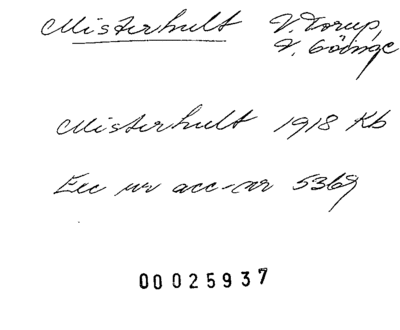 Misterhult V. Torup,
V. Göinge
Misterhult 1918 Kb
Exc ur acc-nr 5369
00025937